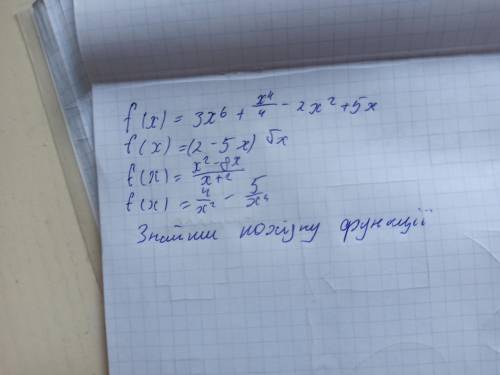 f(x) = 3x⁶ + x⁴/4 - 2x² + 5x
f(x) = (2 - 5x) √x
f(x) = (x² - 8x)/(x + 2)
f(x) = 4/x² - 5/x⁴
Знайти похідну функції